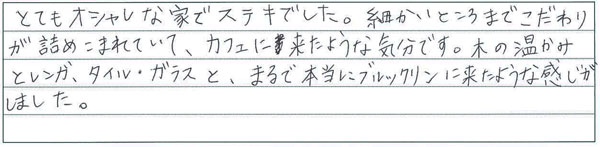 とてもオシャレな家でステキでした。細かいところまでこだわり
が詰めこまれていて、カフェに来たような気分です。木の温かみ
とレンガ、タイル・ガラスと、まるで本当にブルックリンに来たような感じが
しました。